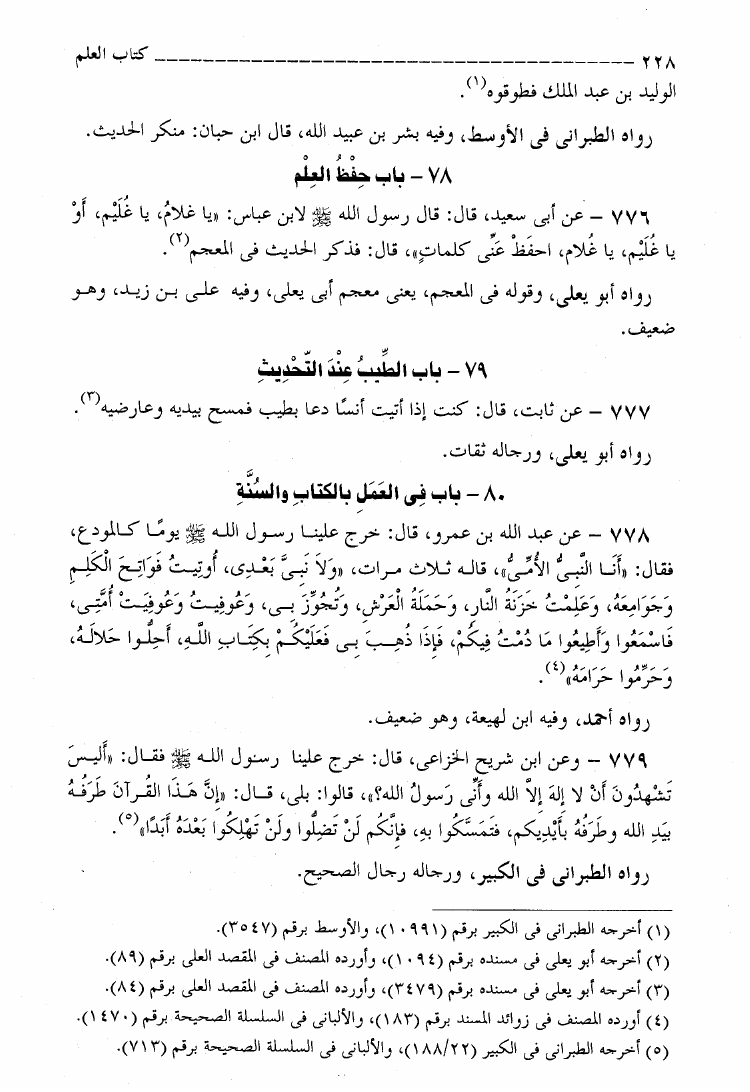 ٢٢٨ ــــــــــــــــــــــــــــــــــــــــــــــــــ كتاب العلم
الوليد بن عبد الملك فطوقوه(١).
رواه الطبرانى فى الأوسط، وفيه بشر بن عبيد الله، قال ابن حبان: منكر الحديث.
٧٨ – باب حِفْظُ العِلْم
٧٧٦ – عن أبى سعيد، قال: قال رسول الله ﷺ لابن عباس: «يا غلامُ، يا غُلَيْم، أَوْ
يا غُلَيْم، يا غُلام، احفَظْ عَنِّى كلماتٍ»، قال: فذكر الحديث فى المعجم(٢).
رواه أبو يعلى، وقوله فى المعجم، يعنى معجم أبى يعلى، وفيه على بن زيد، وهو
ضعيف.
٧٩ – باب الطِّيبُ عِنْدَ التَّحْدِيثِ
٧٧٧ – عن ثابت، قال: كنت إذا أتيت أنسًا دعا بطيب فمسح بيديه وعارضيه(٣).
رواه أبو يعلى، ورجاله ثقات.
٨٠ – باب فِى العَمَلِ بالكتابِ والسُنَّةِ
٧٧٨ – عن عبد الله بن عمرو، قال: خرج علينا رسول الله ﷺ يومًا كالمودع،
فقال: «أَنَا النَّبِىُّ الأُمِّىُّ»، قاله ثلاث مرات، «وَلاَ نَبِىَّ بَعْدِى، أُوتِيتُ فَوَاتِحَ الْكَلِمِ
وَجَوَامِعَهُ، وَعَلِمْتُ خَزَنَةَ النَّارِ، وَحَمَلَةُ الْعَرْشِ، وَتُجُوِّزَ بِى، وَعُوفِيتُ وَعُوفِيَتْ أُمَّتِى،
فَاسْمَعُوا وَأَطِيعُوا مَا دُمْتُ فِيكُمْ، فَإِذَا ذُهِبَ بِى فَعَلَيْكُمْ بِكِتَابِ اللَّهِ، أَحِلُّوا حَلاَلَهُ،
وَحَرِّمُوا حَرَامَهُ»(٤).
رواه أحمد، وفيه ابن لهيعة، وهو ضعيف.
٧٧٩ – وعن ابن شريح الخزاعى، قال: خرج علينا رسول الله ﷺ فقال: «أَلَيسَ
تَشْهدُونَ أَنْ لا إلهَ إلاَّ الله وأَنِّى رَسولُ الله؟»، قالوا: بلى، قال: «إِنَّ هَذَا القُرآنَ طَرَفُهُ
بيَدِ الله وطَرَفُهُ بأَيْدِيكم، فَتمَسَّكُوا بهِ، فإِنَّكُم لَنْ تَضِلُّوا ولَنْ تَهْلِكُوا بَعْدَهُ أَبَدًا»(٥).
رواه الطبرانى فى الكبير، ورجاله رجال الصحيح.
(١) أخرجه الطبرانى فى الكبير برقم (١٠٩٩١)، والأوسط برقم (٣٥٤٧).
(٢) أخرجه أبو يعلى فى مسنده برقم (١٠٩٤)، وأورده المصنف فى المقصد العلى برقم (٨٩).
(٣) أخرجه أبو يعلى فى مسنده برقم (٣٤٧٩)، وأورده المصنف فى المقصد العلى برقم (٨٤).
(٤) أورده المصنف فى زوائد المسند برقم (١٨٣)، والألبانى فى السلسلة الصحيحة برقم (١٤٧٠).
(٥) أخرجه الطبرانى فى الكبير (١٨٨/٢٢)، والألبانى فى السلسلة الصحيحة برقم (٧١٣).